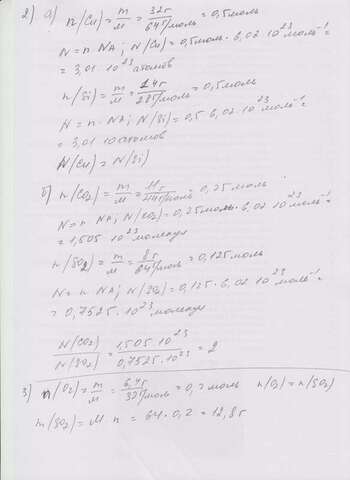 2) а) n(Cu) = m/M = 32г/64г/моль = 0,5 моль
N = n · NA; N(Cu) = 0,5 моль · 6,02 · 10²³ моль⁻¹ =
= 3,01 · 10²³ атомов
n(Si) = m/M = 14г/28г/моль = 0,5 моль
N = n · NA; N(Si) = 0,5 · 6,02 · 10²³ моль⁻¹ =
= 3,01 · 10 атомов
N(Cu) = N(Si)
б) n(CO₂) = m/M = 11г/44г/моль = 0,25 моль
N = n · NA; N(CO₂) = 0,25 моль · 6,02 · 10²³ моль⁻¹ =
= 1,505 · 10²³ молекул
n(SO2) = m/M = 8г/64г/моль = 0,125 моль
N = n · NA; N(SO₂) = 0,125 · 6,02 · 10²³ моль⁻¹ =
= 0,7525 · 10²³ молекул
N(CO₂)/N(SO₂) = 1,505 · 10²³/0,7525 · 10²³ = 2
3) n(O₂) = m/M = 6,4г/32г/моль = 0,2 моль n(O₂) = n(SO₂)
m(SO₂) = M · n = 64 · 0,2 = 12,8г